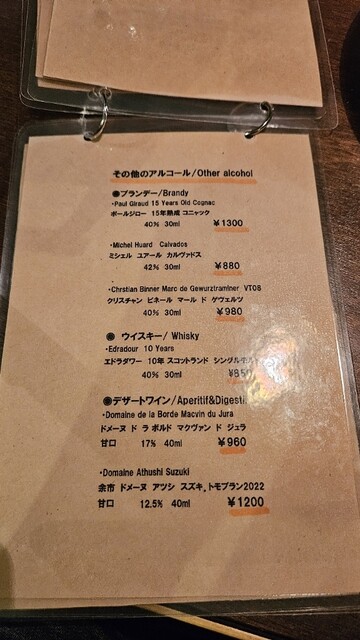 その他のアルコール/Other alcohol
◉ブランデー/Brandy
・Paul Giraud 15 Years Old Cognac
ポールジロー 15年熟成 コニャック
40% 30ml ¥1300
・Michel Huard Calvados
ミシェル ユアール カルヴァドス
42% 30ml ¥880
・Chrstian Binner Marc de Gewurztraminer VT08
クリスチャン ビネール マール ド ゲヴェルツ
40% 30ml ¥980
◉ ウイスキー/ Whisky
・Edradour 10 Years
エドラダワー 10年 スコットランド シングルモルト
40% 30ml ¥850
◉デザートワイン/Aperitif&Digesti
・Domaine de la Borde Macvin du Jura
ドメーヌ ド ラ ボルド マクヴァン ド ジュラ
甘口 17% 40ml ¥960
・Domaine Athushi Suzuki
余市 ドメーヌ アツシ スズキ,トモブラン2022
甘口 12.5% 40ml ¥1200